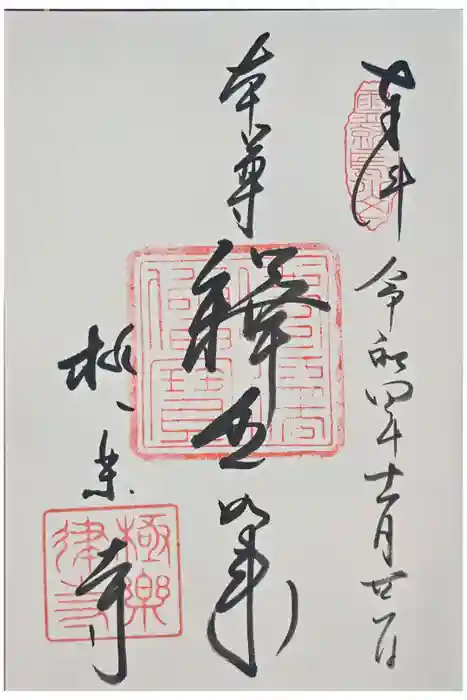 奉拝
令和四年十一月廿一日
本尊
釋迦如来
極楽寺
極樂律寺